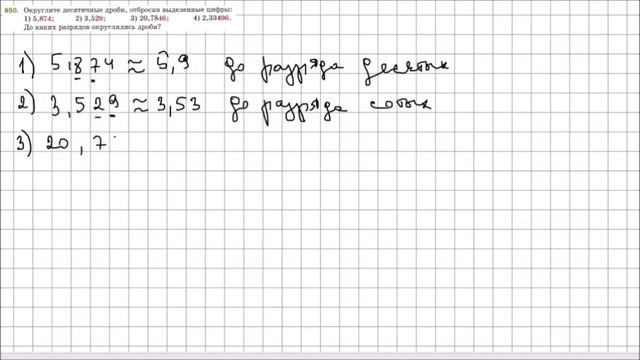 850. Округлите десятичные дроби, отбросив выделенные цифры:
1) 5,874; 2) 3,529; 3) 20,7846; 4) 2,33496.
До каких разрядов округлялись дроби?
1) 5,874 ≈ 5,9 до разряда десятых
2) 3,529 ≈ 3,53 до разряда сотых
3) 20,7